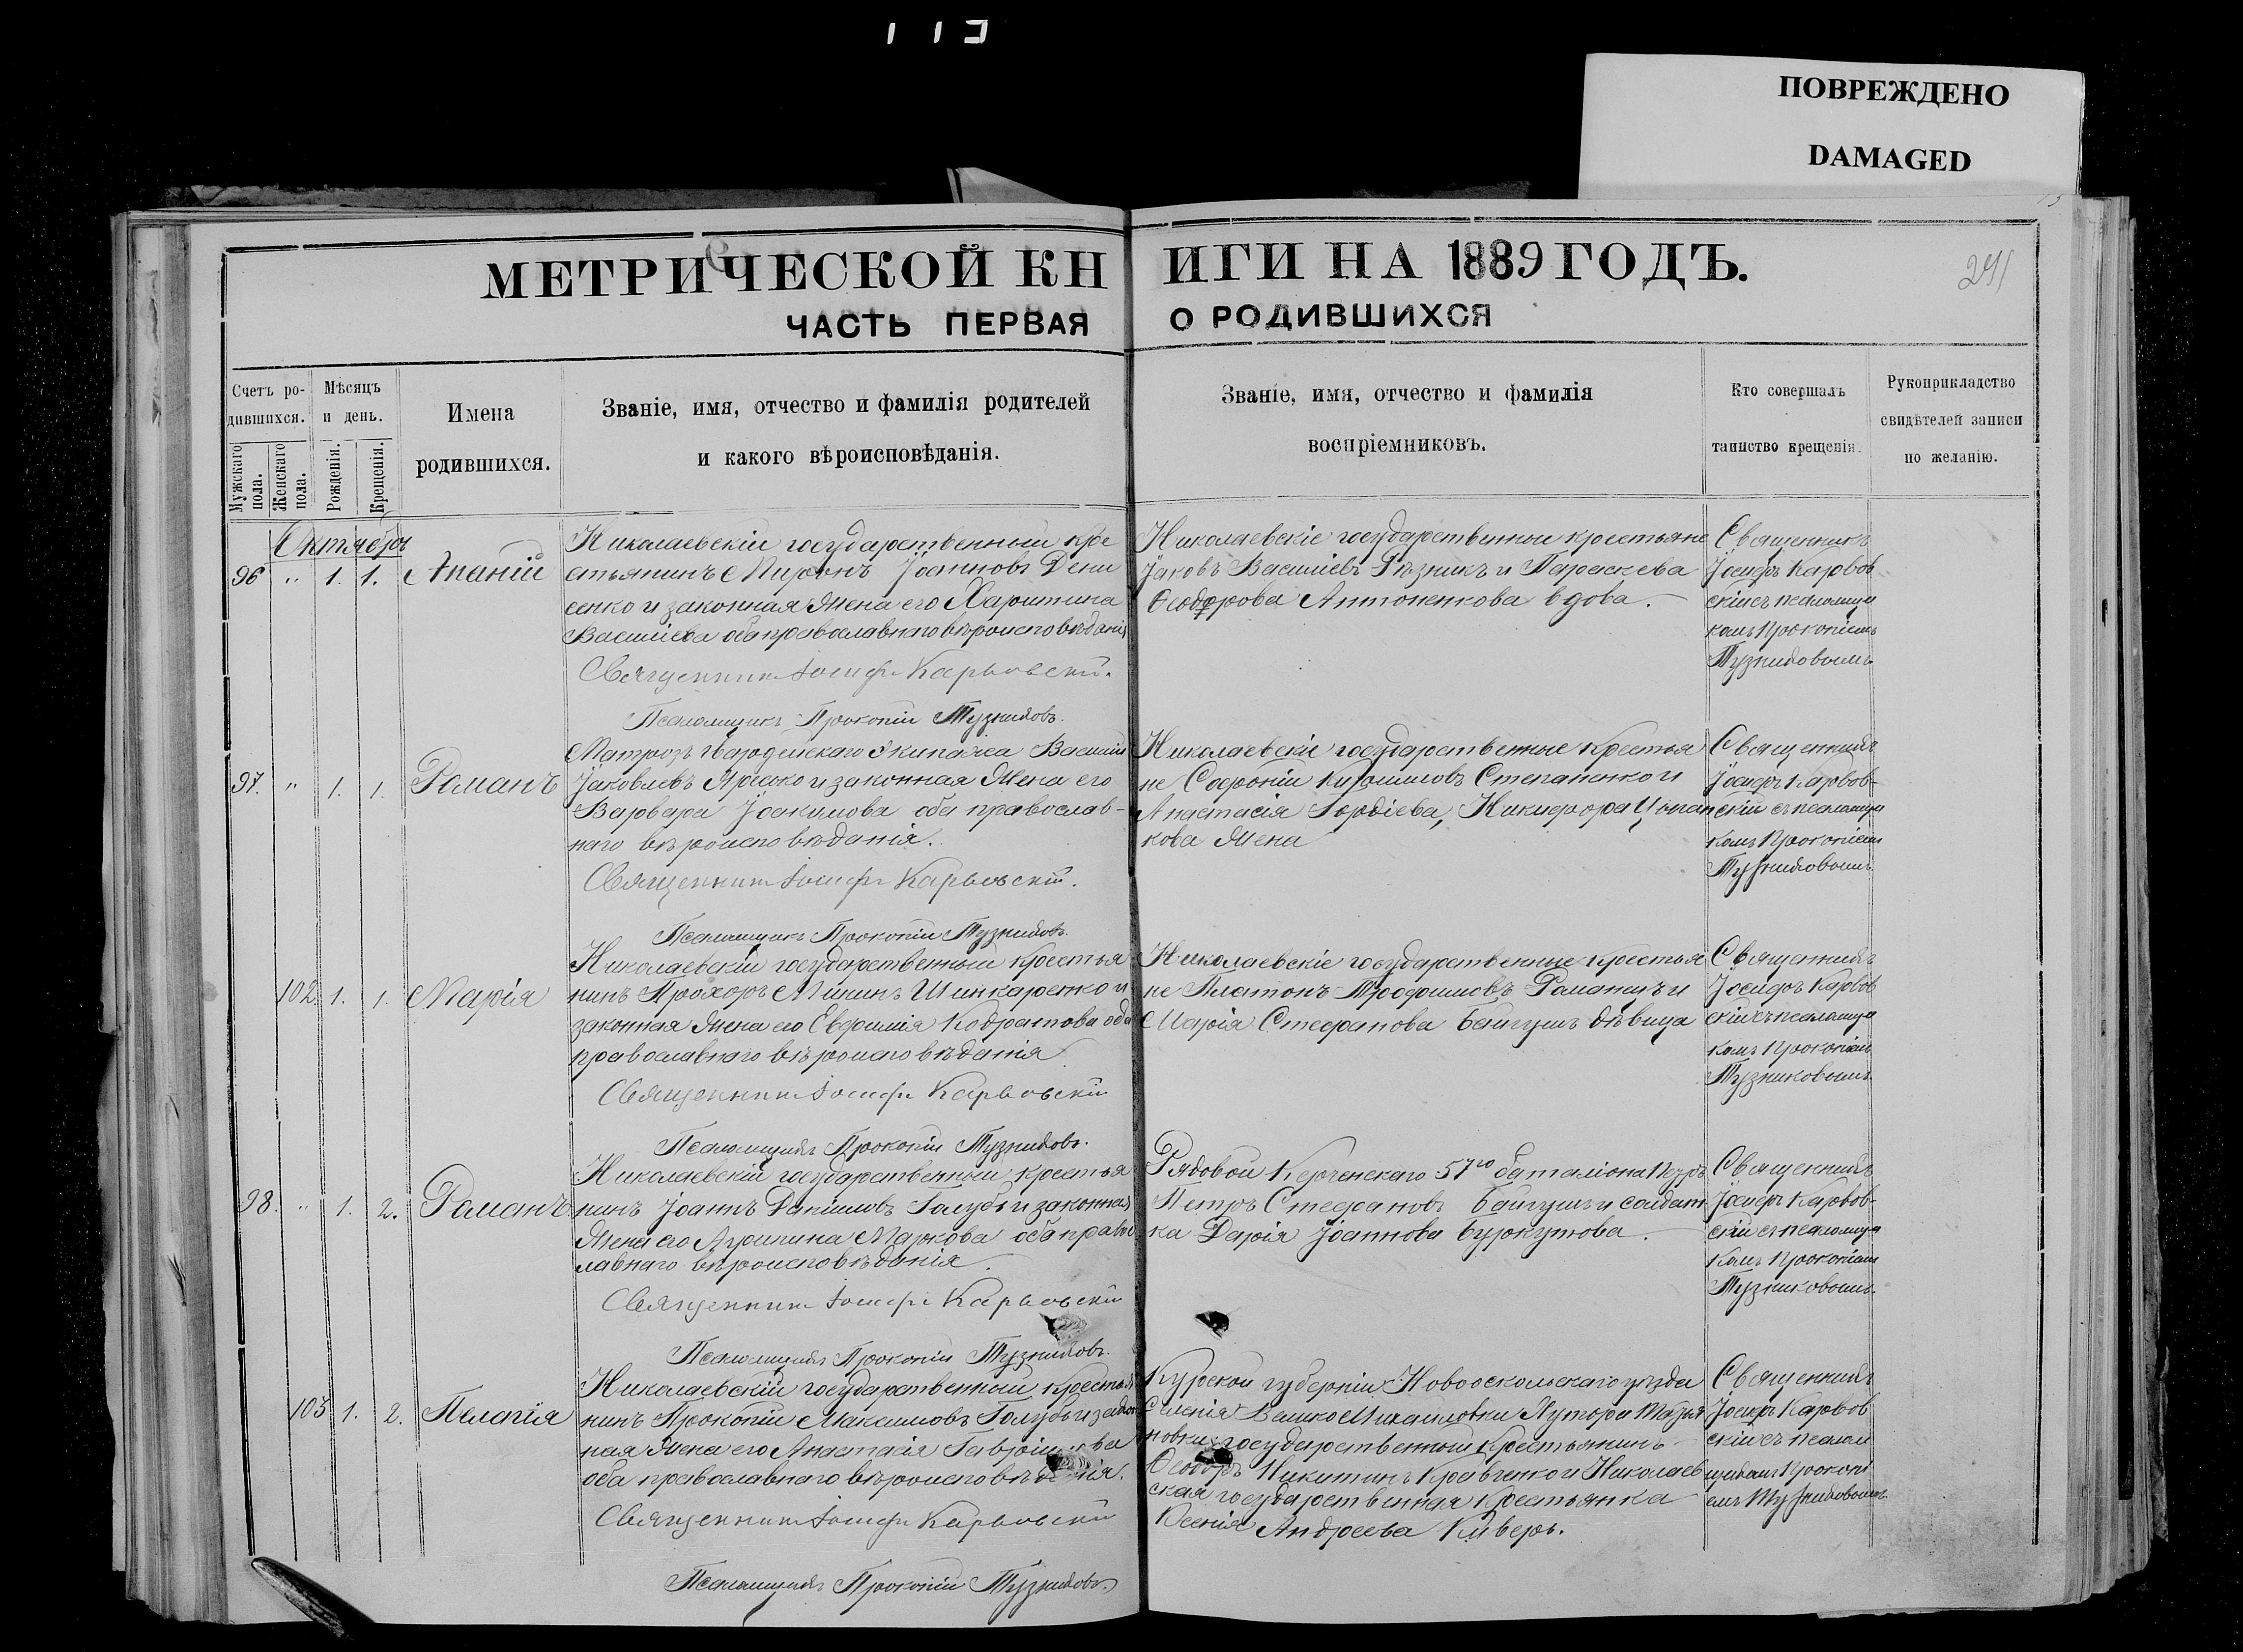 113
ПОВРЕЖДЕНО
DAMAGED
МЕТРИЧЕСКОЙ КНИГИ НА 1889 ГОДЪ.
241
ЧАСТЬ ПЕРВАЯ О РОДИВШИХСЯ
Счетъ ро-
дившихся.
Мужскаго пола.
Женскаго пола.
Мѣсяцъ
и день.
Рожденія.
Крещенія.
Имена
родившихся.
Званіе, имя, отчество и фамилія родителей
и какого вѣроисповѣданія.
Званіе, имя, отчество и фамилія
воспріемниковъ.
Кто совершалъ
таинство крещенія.
Рукоприкладство
свидѣтелей записи
по желанію.
Октябрь
96 " 1. 1. Ананій
Николаевскій государственный кре
стьянинъ Миронъ Іоанновъ Дени
сенко и законная жена его Харитина
Василіева оба православнаго вѣроисповѣданія
Священникъ Іосифъ Карьовскій.
Псаломщикъ Прокопій Тузниковъ.
Николаевскіе государственные крестьяне
Іаковъ Василіевъ Рѣзникъ и Параскева
Ѳеодорова Антоненкова вдова.
Священникъ
Іосифъ Карвов
скій съ псаломщи
комъ Прокопіемъ
Тузниковымъ
97. " 1. 1. Романъ
Матрозъ Гвардейскаго Экипажа Василій
Іаковлевъ Яресько и законная жена его
Варвара Іоакимова оба православ-
наго вѣроисповѣданія.
Священникъ Іосифъ Карьовскій.
Псаломщикъ Прокопій Тузниковъ.
Николаевскіе государственные крестья
не Софроній Кирилловъ Степаненко и
Анастасія Гордіева, Никифора Цыган
кова жена
Священникъ
Іосифъ Карвов-
скій съ псаломщи
комъ Прокопіемъ
Тузниковымъ.
102. 1. 1. Марія
Николаевскій государственный крестья
нинъ Прохоръ Мининъ Шинкаренко и
законная жена его Евфимія Кодратова оба
православнаго вѣроисповѣданія
Священникъ Іосифъ Карьовскій
Псаломщикъ Прокопій Тузниковъ.
Николаевскіе государственные крестья
не Платонъ Трофимовъ Романецъ и
Марія Стефанова Байгушъ дѣвица
Священникъ
Іосифъ Карвов
скій съ псаломщи
комъ Прокопіемъ
Тузниковымъ
98. " 1. 2. Романъ
Николаевскій государственный крестья
нинъ Іоаннъ Даніиловъ Голубъ и законная
жена его Агрипина Маркова оба правос
лавнаго вѣроисповѣданія.
Священникъ Іосифъ Карьовскій
Псаломщикъ Прокопій Тузниковъ.
Рядовой Керченскаго 57го баталіона
Петръ Стефановъ Байгушъ и солдат
ка Дарія Іоаннова Буркутова.
Священникъ
Іосифъ Карвов-
скій съ псаломщи
комъ Прокопіемъ
Тузниковымъ.
103 1. 2. Пелагія
Николаевскій государственный крестья
нинъ Прокопій Максимовъ Голубъ и закон
ная жена его Анастасія
оба православнаго вѣроисповѣданія.
Священникъ Іосифъ Карьовскій
Псаломщикъ Прокопій Тузниковъ.
Курской губерніи Новооскольскаго уѣзда
Селенія Хутора
государственный крестьянинъ
Ѳеодоръ Никитинъ Кравченко и Николаев
ская государственная крестьянка
Ксенія Андреева Киверъ.
Священникъ
Іосифъ Карвов
скій съ псалом
щикомъ Прокопі
емъ Тузниковымъ.